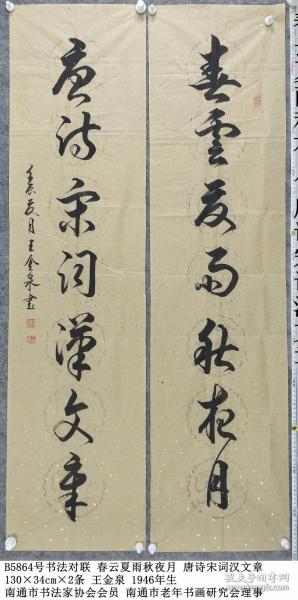 春雲夏雨秋夜月
唐詩宋詞漢文章
壬辰夏月王金泉書
B5864号书法对联 春云夏雨秋夜月 唐诗宋词汉文章
130×34cm×2条 王金泉 1946年生
南通市书法家协会会员 南通市老年书画研究会理事